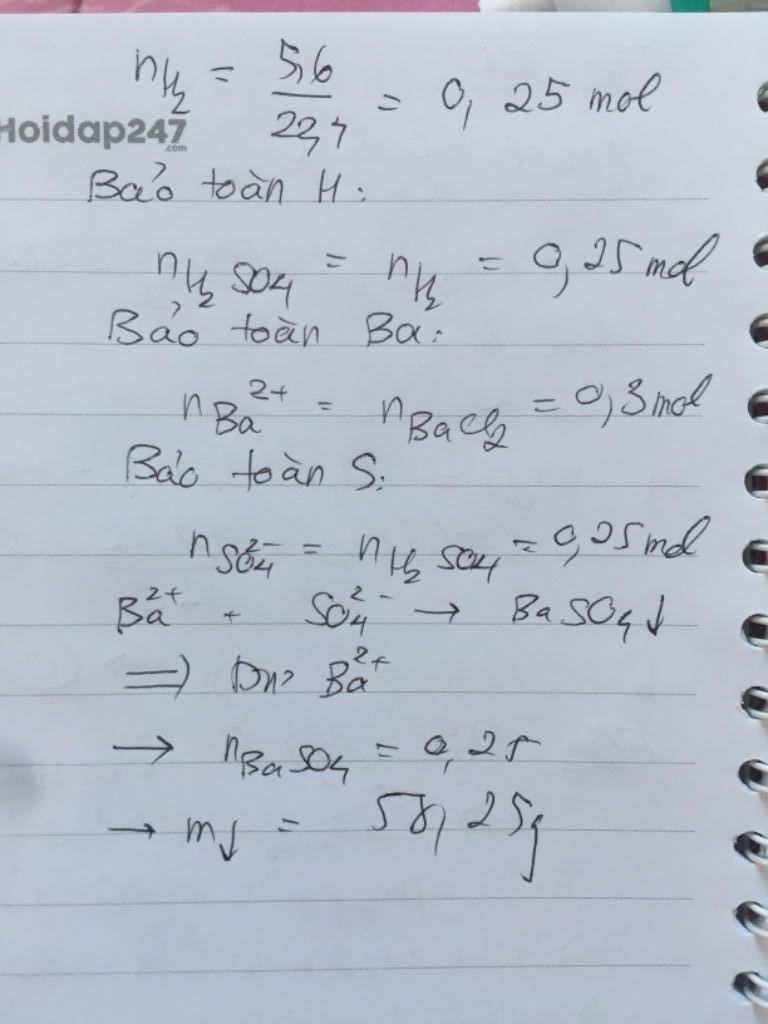 nH₂ = 5,6/22,4 = 0,25 mol
Hoidap247
.com
Bảo toàn H:
nH₂SO₄ = nH₂ = 0,25 mol
Bảo toàn Ba:
nBa²⁺ = nBaCl₂ = 0,3 mol
Bảo toàn S:
nSO₄²⁻ = nH₂SO₄ = 0,25 mol
Ba²⁺ + SO₄²⁻ → BaSO₄↓
=> Dư Ba²⁺
→ nBaSO₄ = 0,25
→ m↓ = 58,25g